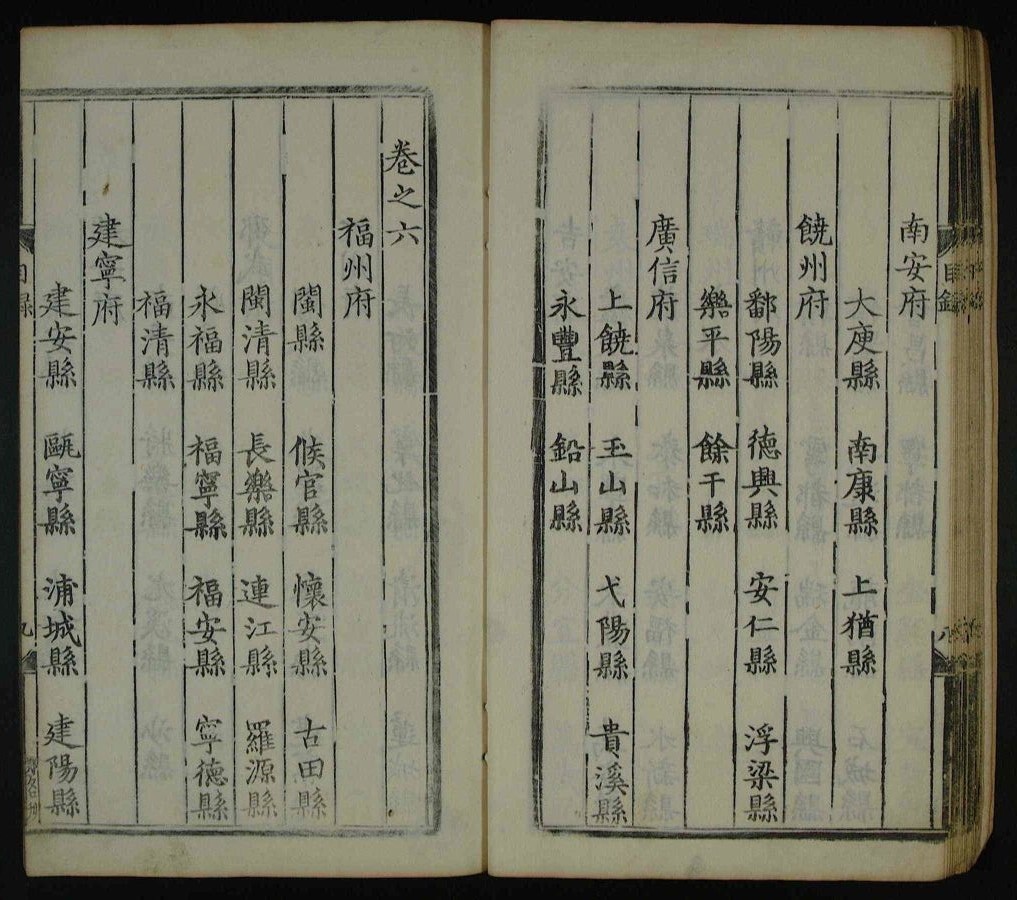 南安府
大庾縣 南康縣 上猶縣
饒州府
鄱陽縣 德興縣 安仁縣 浮梁縣
樂平縣 餘干縣
廣信府
上饒縣 玉山縣 弋陽縣 貴溪縣
永豐縣 鉛山縣
卷之六
福州府
閩縣 候官縣 懷安縣 古田縣
閩清縣 長樂縣 連江縣 羅源縣
永福縣 福寧縣 福安縣 寧德縣
福清縣
建寧府
建安縣 甌寧縣 浦城縣 建陽縣
目錄
九